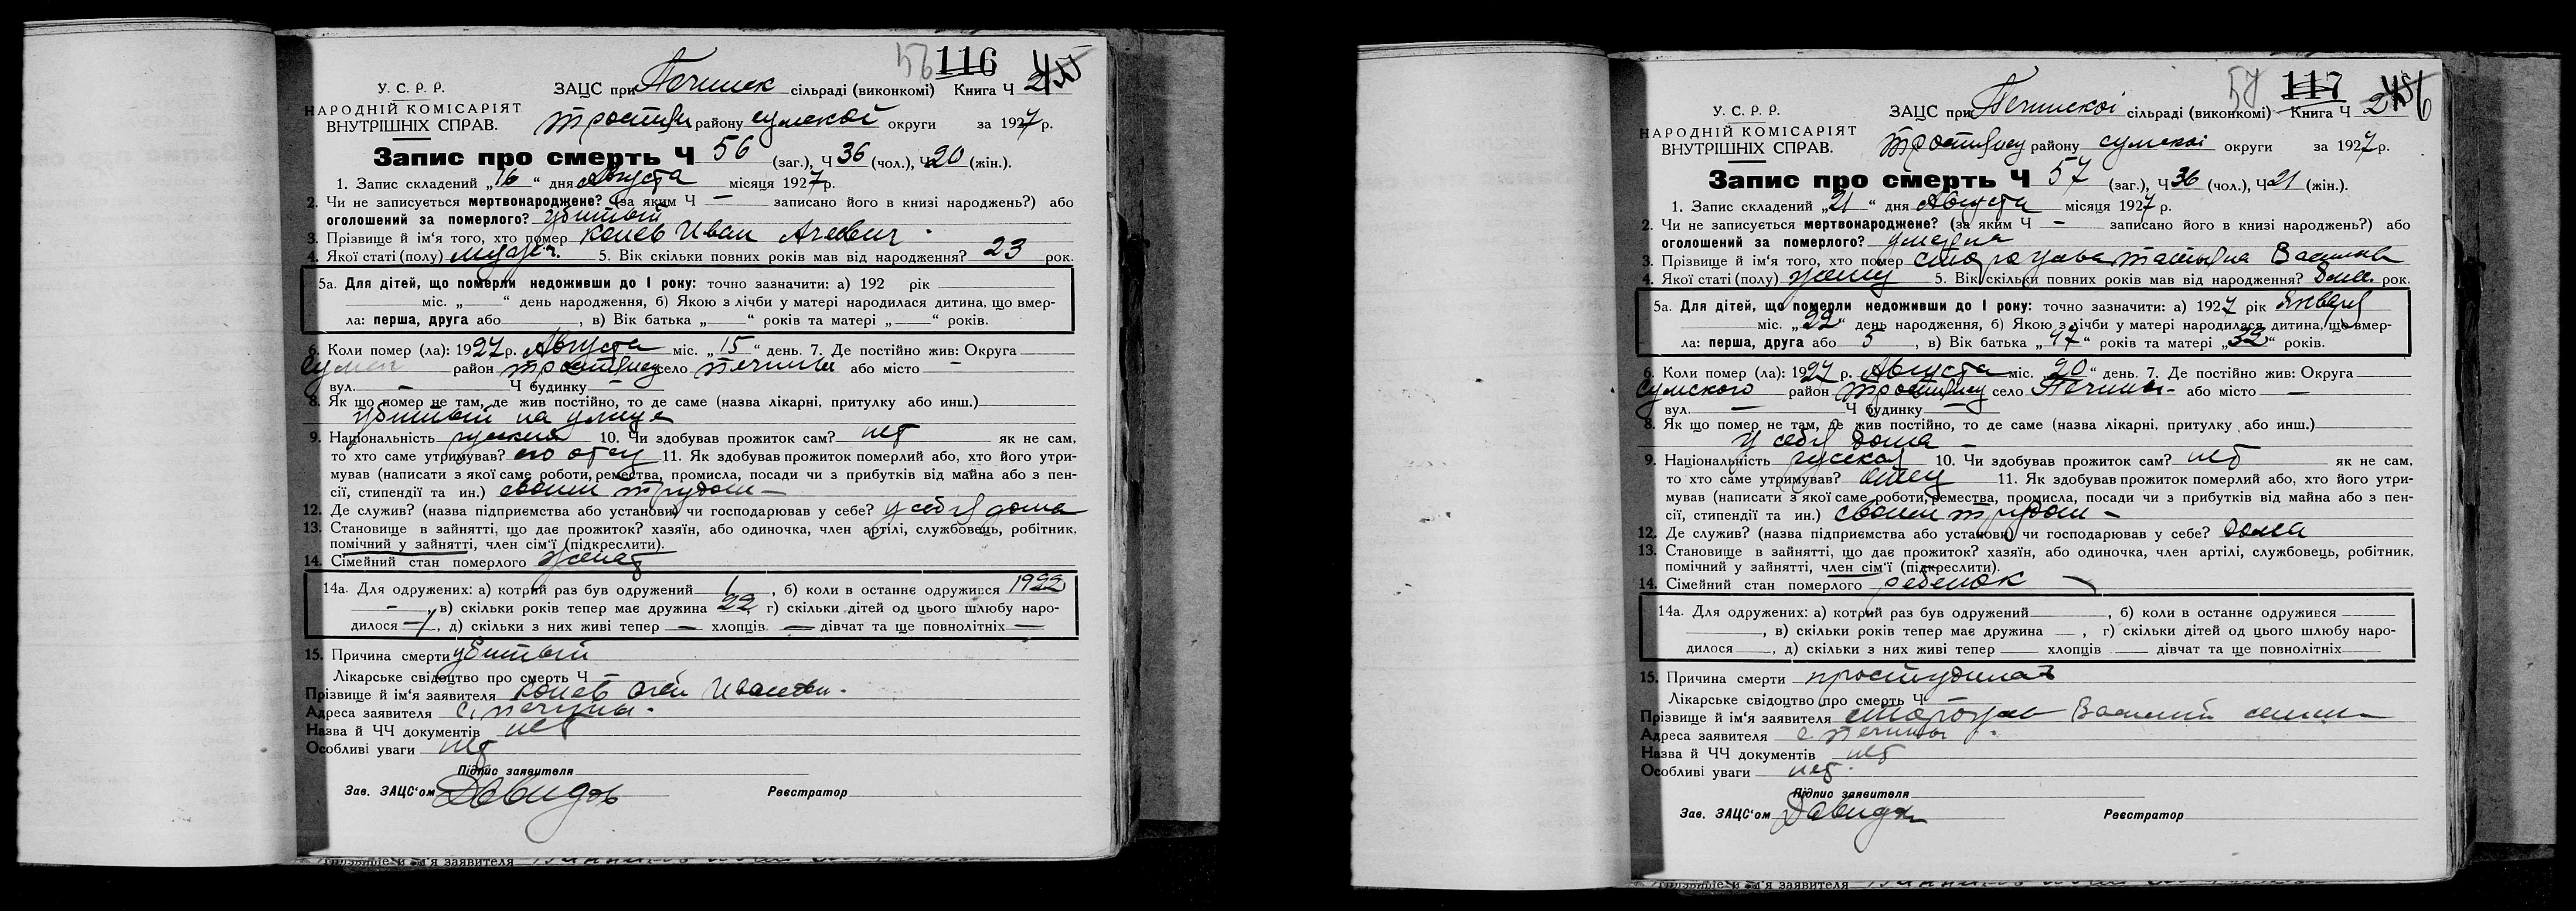 56 116 45
У. С. Р. Р. ЗАЦС при Печинск сільраді (виконкомі) Книга Ч 2
НАРОДНІЙ КОМІСАРІЯТ
ВНУТРІШНІХ СПРАВ. району сумской округи за 1927 р.
Запис про смерть Ч 56 (заг.), Ч 36 (чол.), Ч 20 (жін.).
1. Запис складений „16“ дня Августа місяця 1927 р.
2. Чи не записується мертвонароджене? (за яким Ч — записано його в книзі народжень?) або
оголошений за померлого? убитый
3. Прізвище й ім‘я того, хто помер Конев Иван
4. Якої статі (полу) 5. Вік скільки повних років мав від народження? 23 рок.
5а. Для дітей, що померли недоживши до 1 року: точно зазначити: а) 192 рік
міс. „ “ день народження, б) Якою з лічби у матері народилася дитина, що вмер-
ла: перша, друга або , в) Вік батька „ “ років та матері „ “ років.
6. Коли помер (ла): 1927 р. Августа міс. „15“ день. 7. Де постійно жив: Округа
район село печины або місто —
вул. — Ч будинку —
8. Як що помер не там, де жив постійно, то де саме (назва лікарні, притулку або инш.)
убитый на улице
9. Національність 10. Чи здобував прожиток сам? нет як не сам,
то хто саме утримував? его отец 11. Як здобував прожиток померлий або, хто його утри-
мував (написати з якої саме роботи, ремества, промисла, посади чи з прибутків від майна або з пен-
сії, стипендії та ин.) своим трудом —
12. Де служив? (назва підприємства або установи) чи господарював у себе? у себя дома
13. Становище в зайнятті, що дає прожиток? хазяїн, або одиночка, член артілі, службовець, робітник,
помічний у зайнятті, член сім‘ї (підкреслити).
14. Сімейний стан померлого женат
14а. Для одружених: а) котрий раз був одружений 1, б) коли в останнє одружився 1922
—, в) скільки років тепер має дружина 22, г) скільки дітей од цього шлюбу наро-
дилося , д) скільки з них живі тепер — хлопців — дівчат та ще повнолітніх —
15. Причина смерти убитый
Лікарське свідоцтво про смерть Ч
Прізвище й ім‘я заявителя Конев
Адреса заявителя с. печины.
Назва й ЧЧ документів нет
Особливі уваги нет
Підпис заявителя
Зав. ЗАЦС‘ом Давидов Реєстратор
57 117
У. С. Р. Р. ЗАЦС при Печинскоі сільраді (виконкомі) Книга Ч
НАРОДНІЙ КОМІСАРІЯТ
ВНУТРІШНІХ СПРАВ. району сумскоі округи за 1927 р.
Запис про смерть Ч 57 (заг.), Ч 36 (чол.), Ч 21 (жін.).
1. Запис складений „21“ дня Августа місяця 1927 р.
2. Чи не записується мертвонароджене? (за яким Ч — записано його в книзі народжень?) або
оголошений за померлого? умерла
3. Прізвище й ім‘я того, хто помер Татьяна
4. Якої статі (полу) 5. Вік скільки повних років мав від народження? рок.
5а. Для дітей, що померли недоживши до 1 року: точно зазначити: а) 1927 рік Января
міс. „22“ день народження, б) Якою з лічби у матері народилася дитина, що вмер-
ла: перша, друга або 5, в) Вік батька „47“ років та матері „32“ років.
6. Коли помер (ла): 1927 р. Августа міс. „20“ день. 7. Де постійно жив: Округа
Сумского район село Печины — або місто —
вул. — Ч будинку —
8. Як що помер не там, де жив постійно, то де саме (назва лікарні, притулку або инш.)
у себя дома —
9. Національність русская 10. Чи здобував прожиток сам? нет як не сам,
то хто саме утримував? отец 11. Як здобував прожиток померлий або, хто його утри-
мував (написати з якої саме роботи, ремества, промисла, посади чи з прибутків від майна або з пен-
сії, стипендії та ин.) своим трудом —
12. Де служив? (назва підприємства або установи) чи господарював у себе? дома
13. Становище в зайнятті, що дає прожиток? хазяїн, або одиночка, член артілі, службовець, робітник,
помічний у зайнятті, член сім‘ї (підкреслити).
14. Сімейний стан померлого ребенок
14а. Для одружених: а) котрий раз був одружений , б) коли в останнє одружився
, в) скільки років тепер має дружина , г) скільки дітей од цього шлюбу наро-
дилося , д) скільки з них живі тепер хлопців дівчат та ще повнолітніх
15. Причина смерти
Лікарське свідоцтво про смерть Ч
Прізвище й ім‘я заявителя Василий
Адреса заявителя с. печины.
Назва й ЧЧ документів нет
Особливі уваги нет.
Підпис заявителя
Зав. ЗАЦС‘ом Давидов Реєстратор